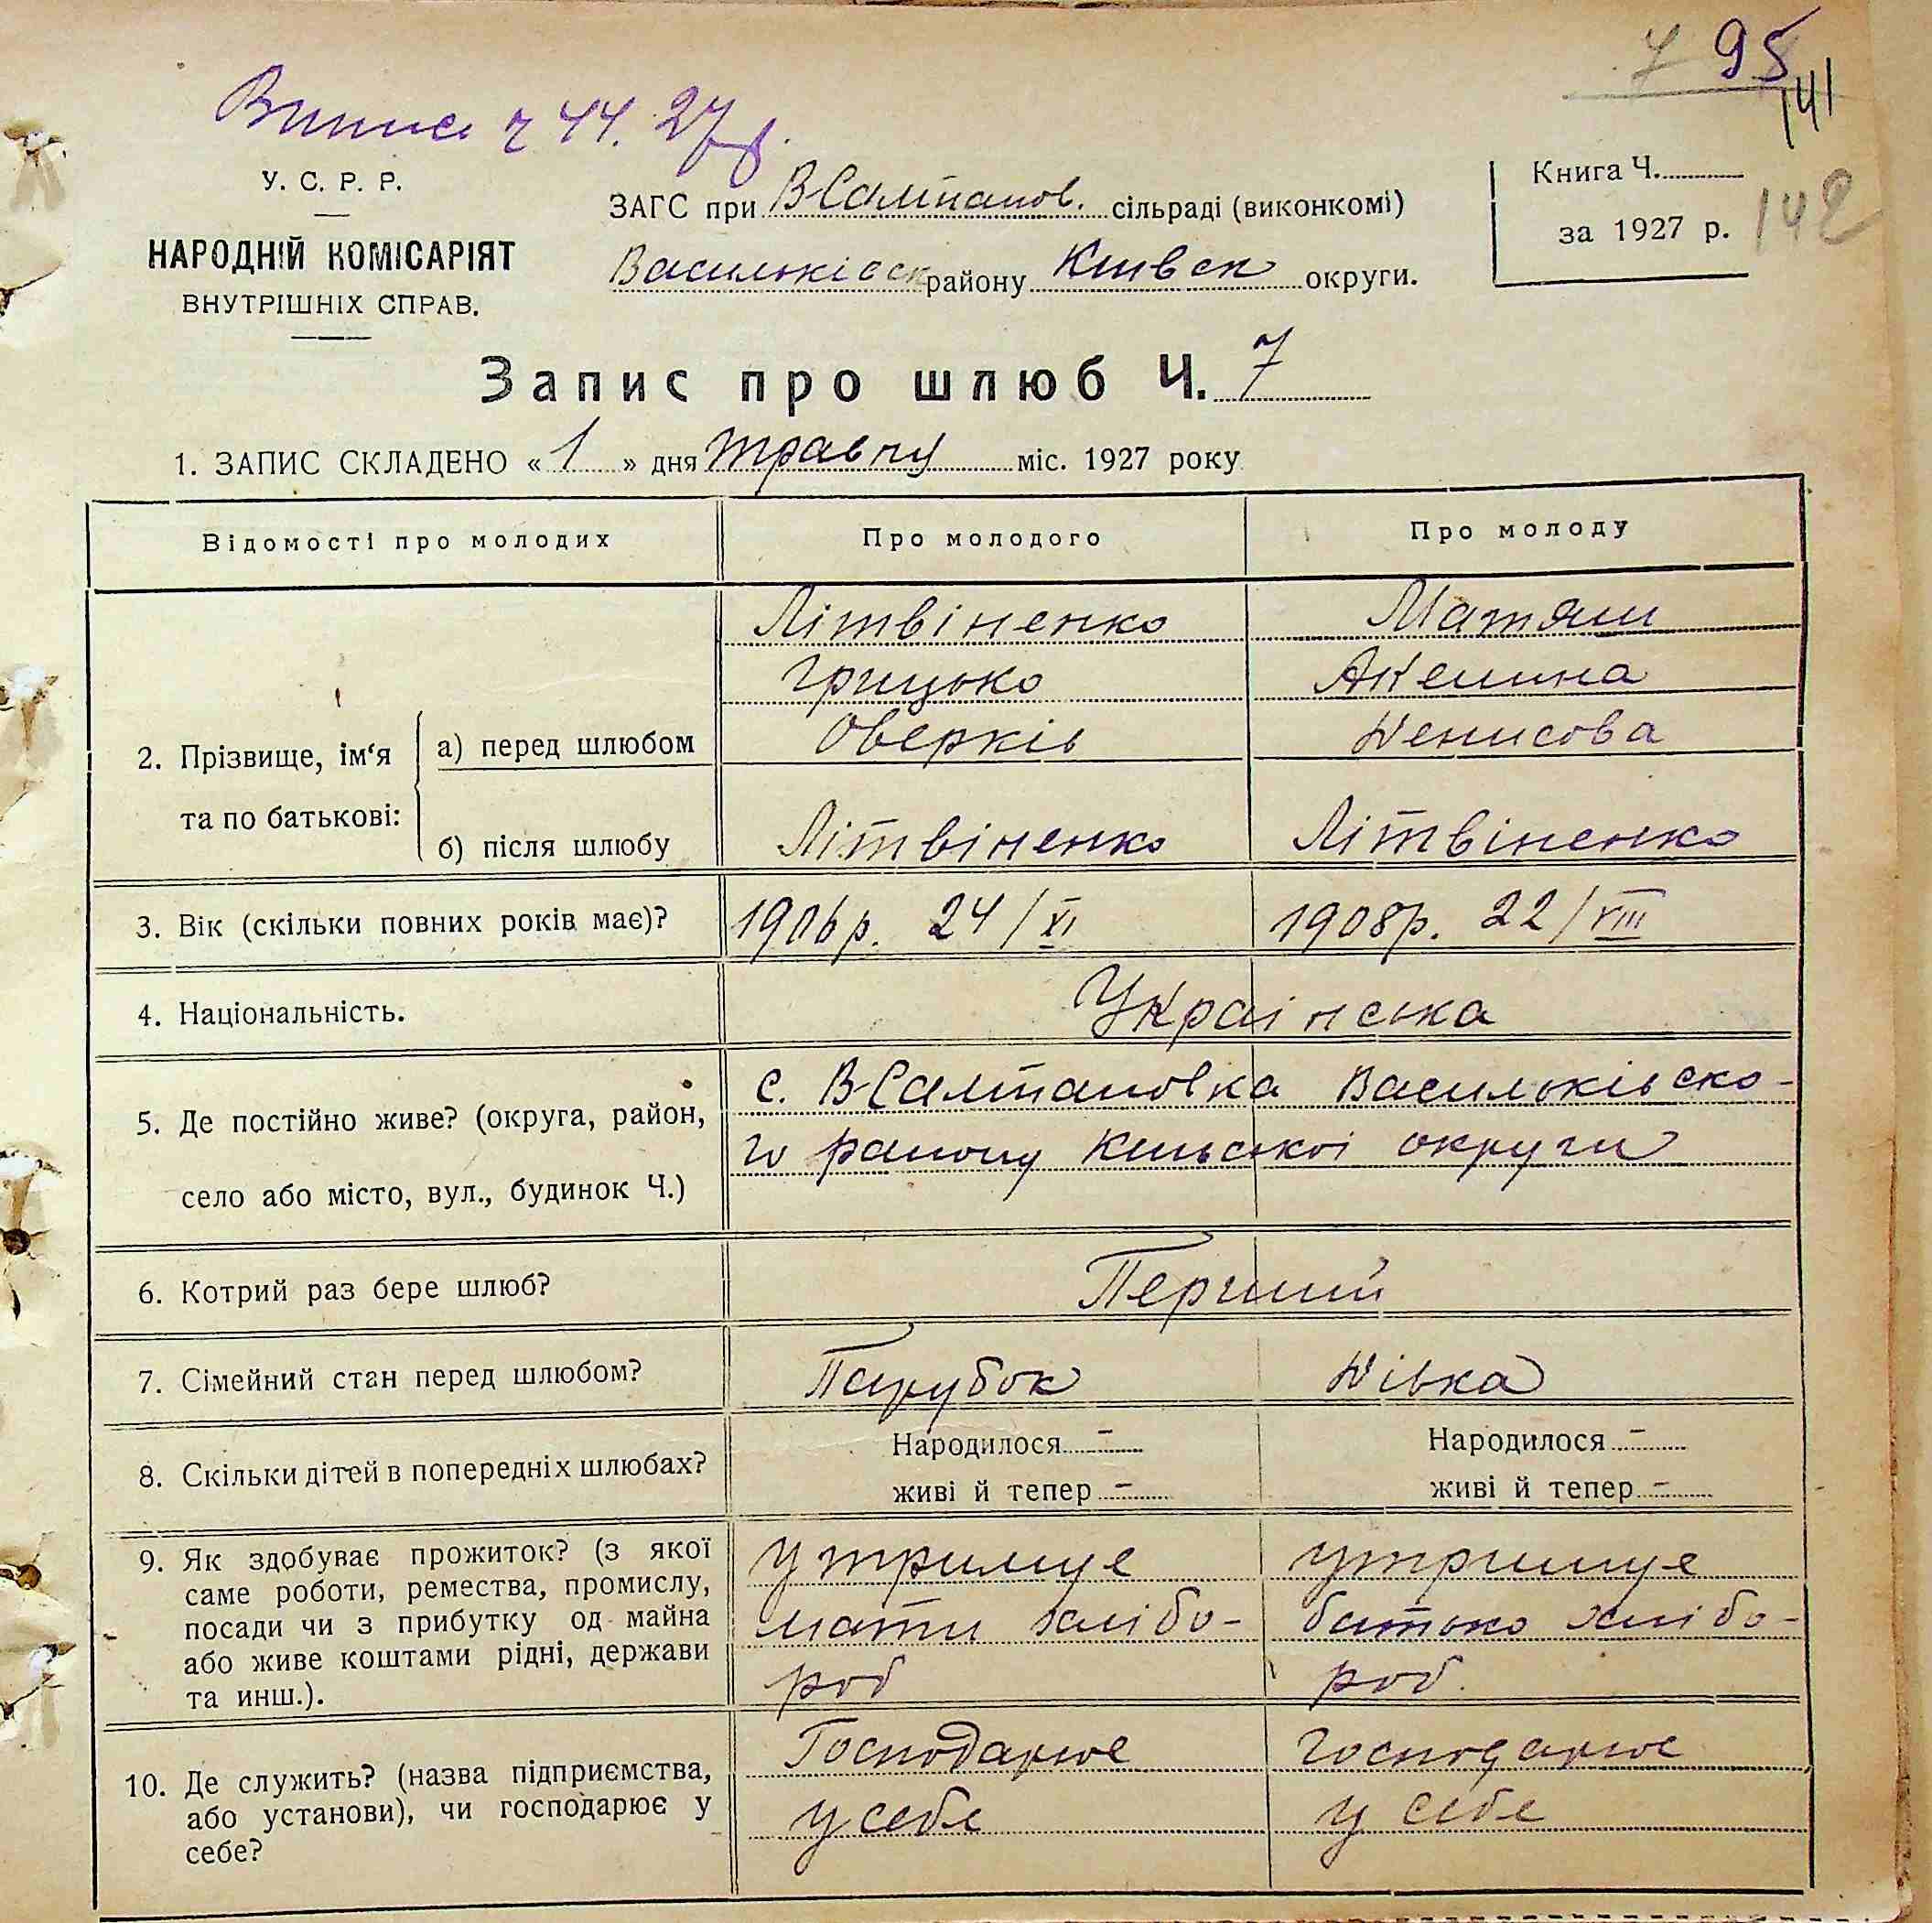 7 95
141
142
Випис ч 44. 27р.
У. С. Р. Р.
НАРОДНІЙ КОМІСАРІЯТ
ВНУТРІШНІХ СПРАВ.
ЗАГС при ВСалтанов. сільраді (виконкомі)
Васильківск району Київск округи.
Книга Ч.
за 1927 р.
Запис про шлюб Ч. 7
1. ЗАПИС СКЛАДЕНО « 1 » дня травня міс. 1927 року
Відомості про молодих Про молодого Про молоду
2. Прізвище, ім'я та по батькові:
а) перед шлюбом
Літвіненко Матяш
Грицько Акелина
Оверків Денисова
б) після шлюбу Літвіненко Літвіненко
3. Вік (скільки повних років має)? 1906р. 24/XI 1908р. 22/VIII
4. Національність. Українська
5. Де постійно живе? (округа, район,
село або місто, вул., будинок Ч.)
с. ВСалтановка Васильківско-
го району Киівскоі округи
6. Котрий раз бере шлюб? Перший
7. Сімейний стан перед шлюбом? Парубок Дівка
8. Скільки дітей в попередніх шлюбах? Народилося - Народилося -
живі й тепер - живі й тепер -
9. Як здобуває прожиток? (з якої
саме роботи, ремества, промислу,
посади чи з прибутку од майна
або живе коштами рідні, держави
та инш.).
утримує утримує
мати хлібо- батько хлібо-
роб роб.
10. Де служить? (назва підприємства,
або установи), чи господарює у
себе?
Господарює господарює
у себе у себе